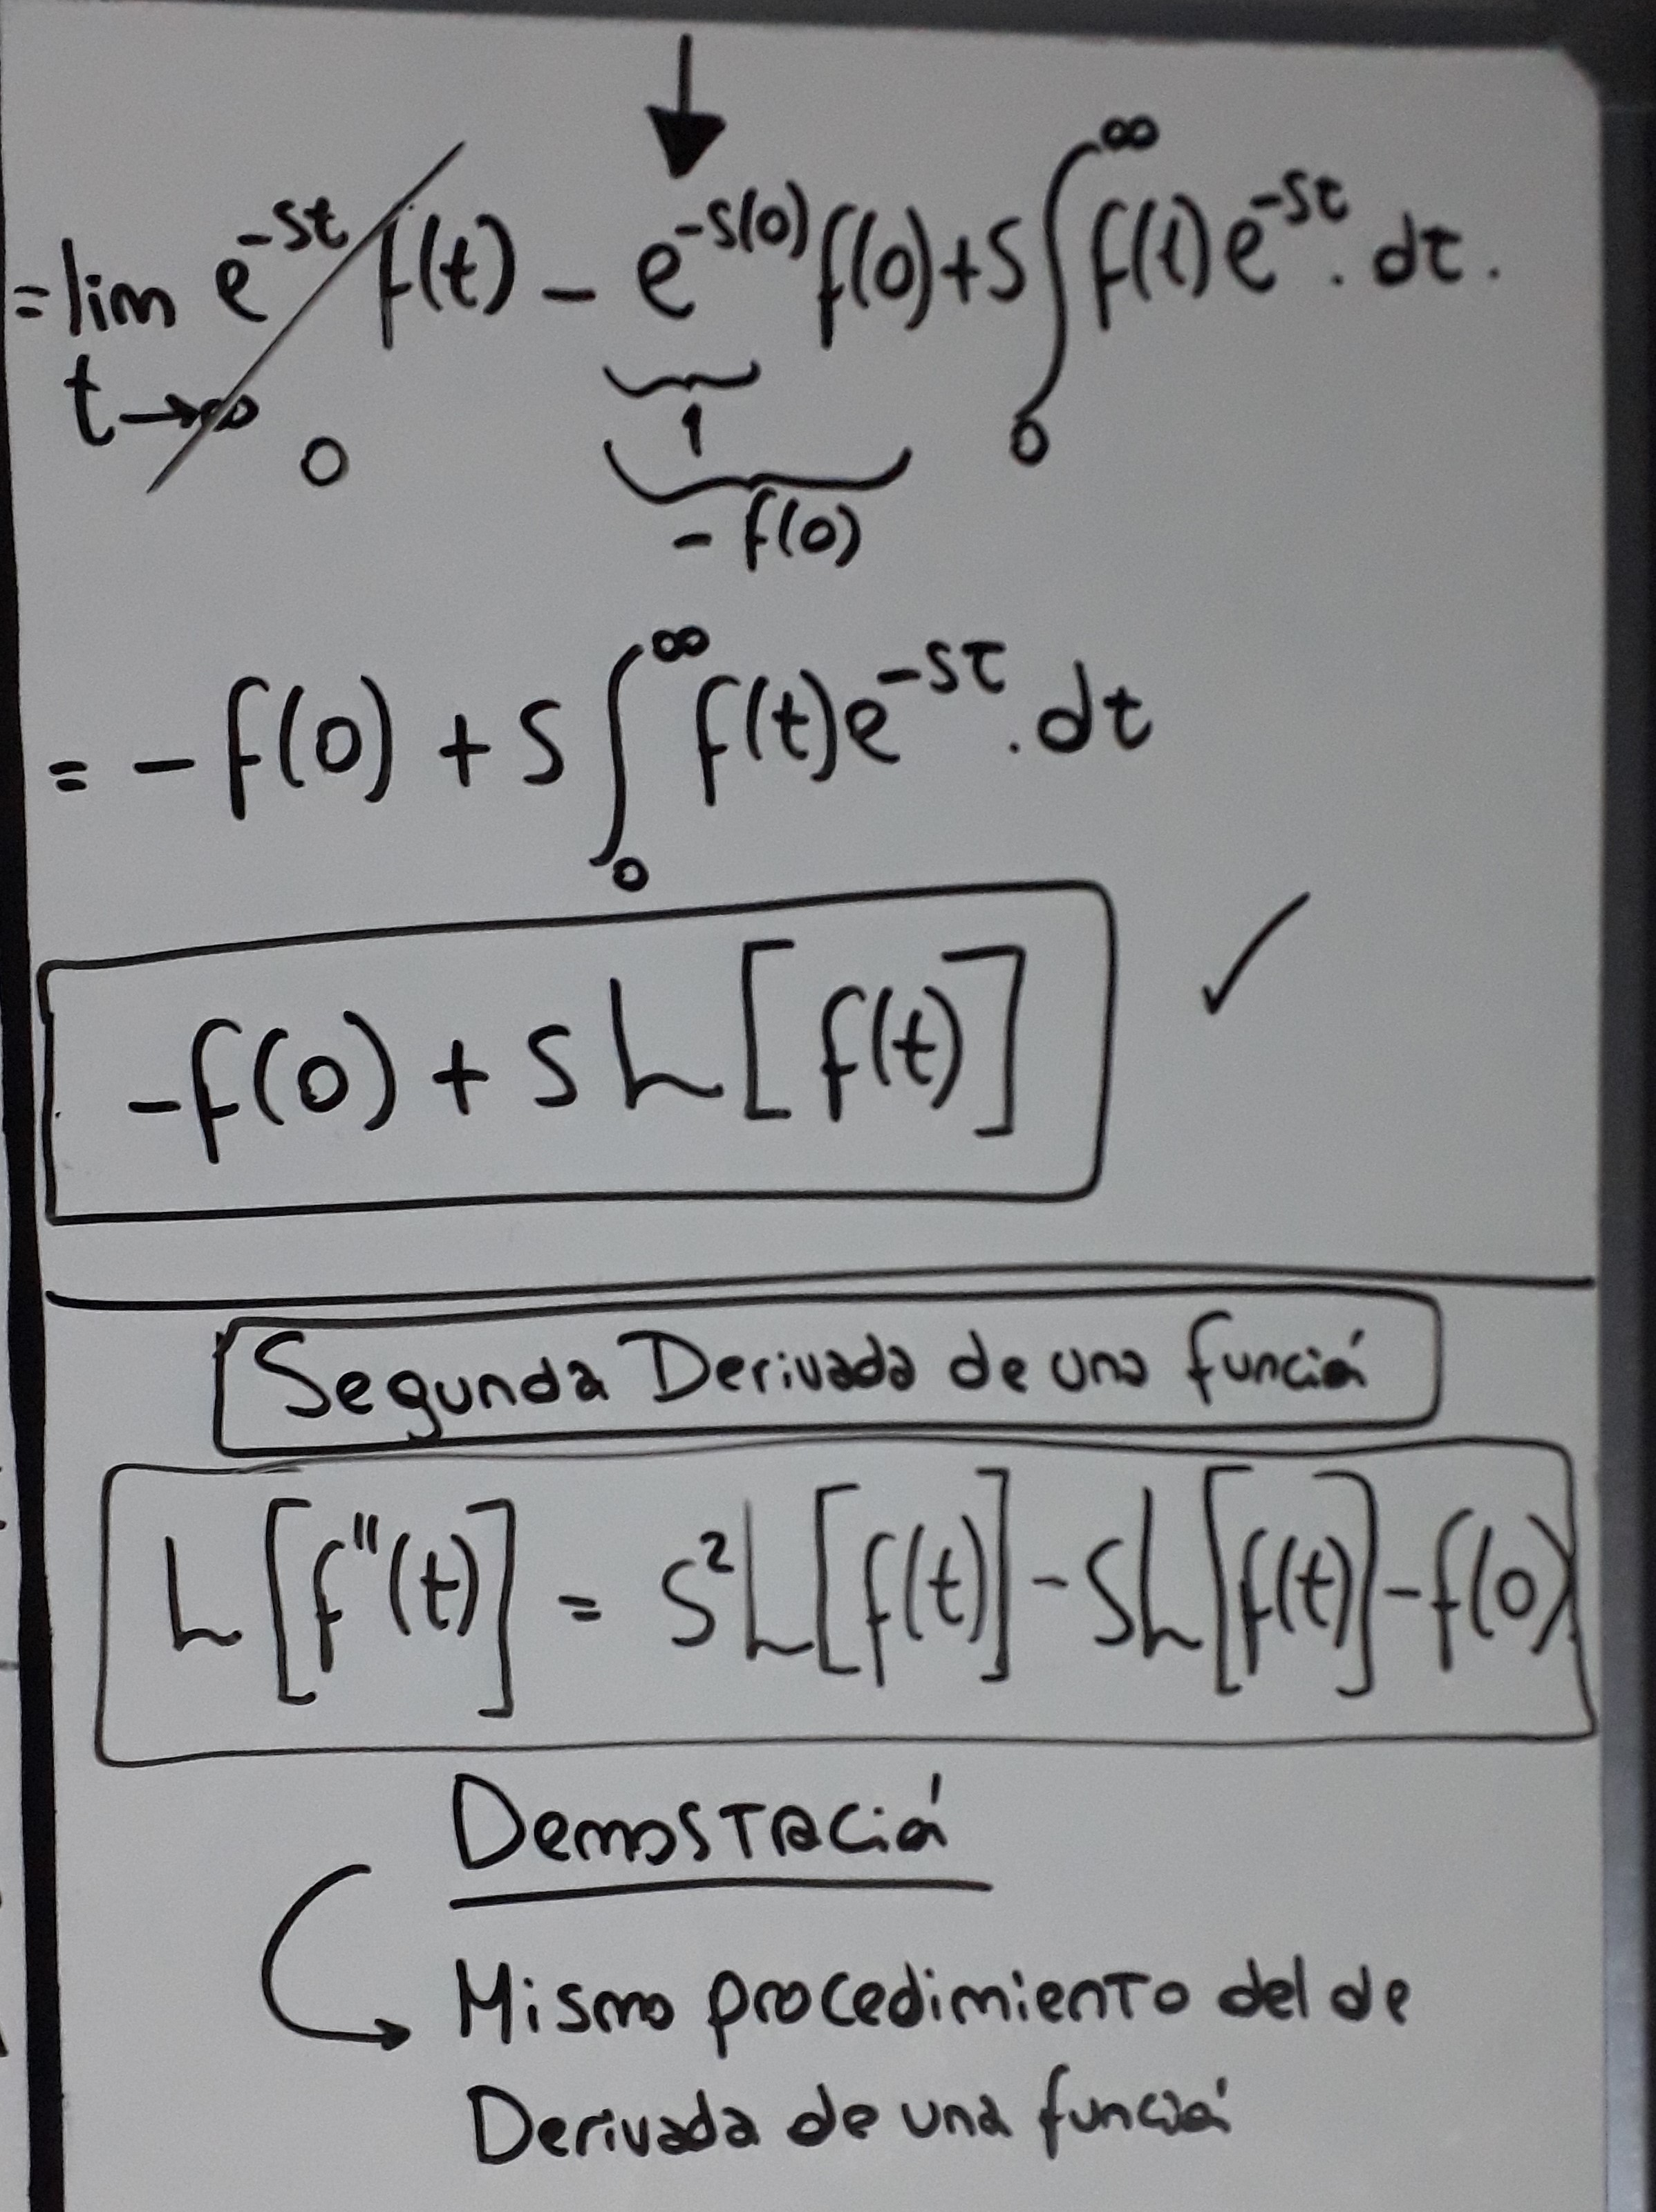 = lim e^-st f(t) - e^-s(0) f(0) + s ∫ f(t) e^-st . dt .
t→∞ 0 1 0 ∞
- f(0)
= - f(0) + s ∫₀^∞ f(t) e^-st . dt
-f(0) + s L [f(t)] ✓
Segunda Derivada de una función
L [f''(t)] = s² L [f(t)] - s L [f(t)] - f(0)
Demostración
Mismo procedimiento del de
Derivada de una función